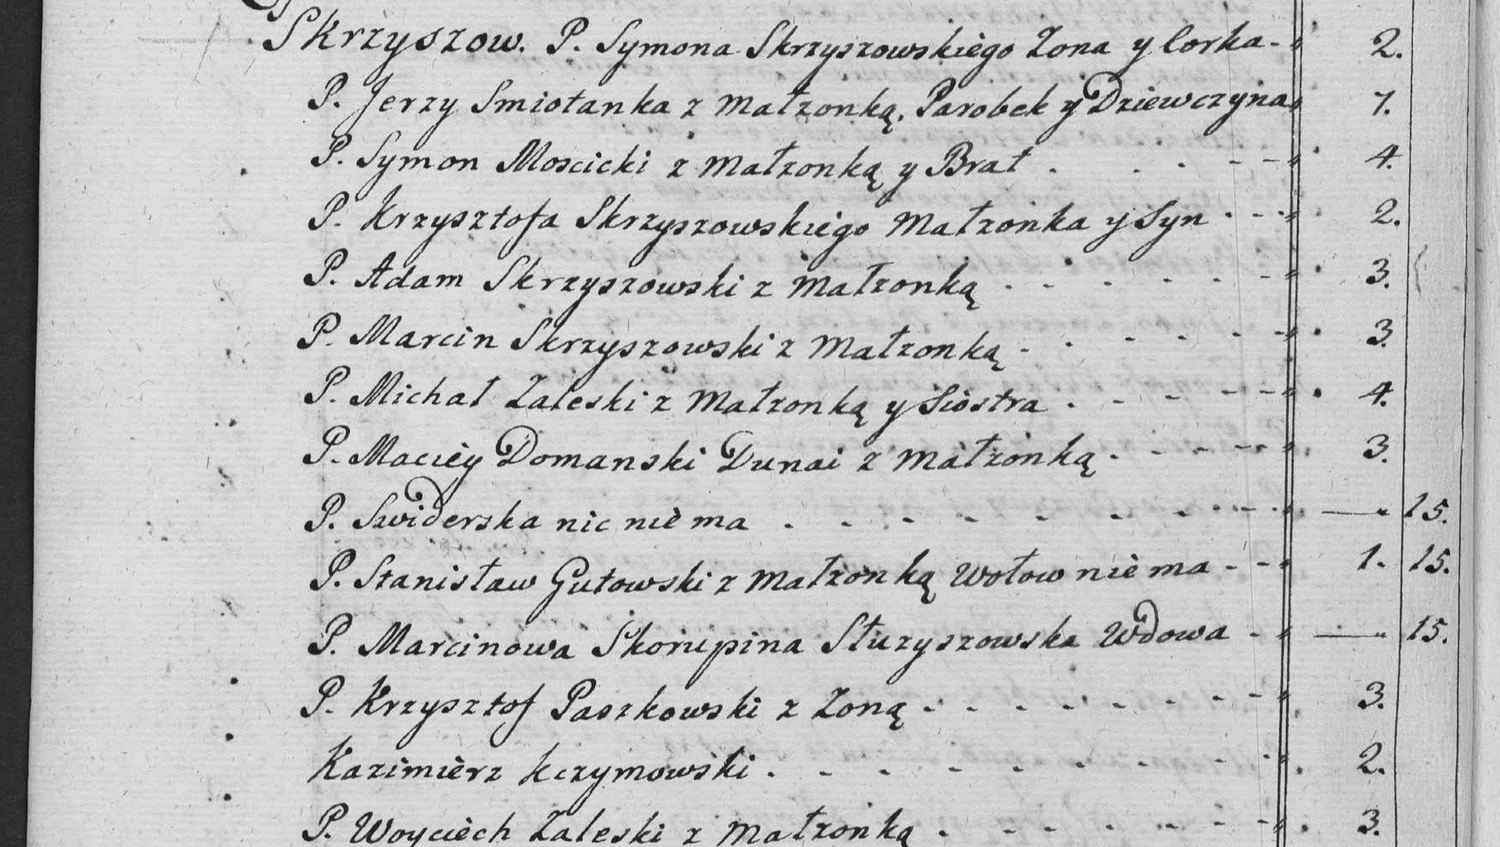 Skrzyszow. P. Symona Skrzyszowskiego Zona y Corka 2.
P. Jerzy Smiotanka z Małzonką, Parobek y Dziewczyna 7.
P. Symon Moscicki z Małzonką y Brat 4.
P. Krzysztofa Skrzyszowskiego Małzonka y Syn 2.
P. Adam Skrzyszowski z Małzonką 3.
P. Marcin Skrzyszowski z Małzonką 3.
P. Michał Zaleski z Małzonką y Siostra 4.
P. Maciey Domanski Dunai z Małzonką 3.
P. Swiderska nic niema — 15.
P. Stanisław Gutowski z Małzonką Wołow niema 1. 15.
P. Marcinowa Skorupina Skrzyszowska Wdowa — 15.
P. Krzysztof Paszkowski z Zoną 3.
Kazimierz Krzymowski 2.
P. Woyciech Zaleski z Małzonką 3.